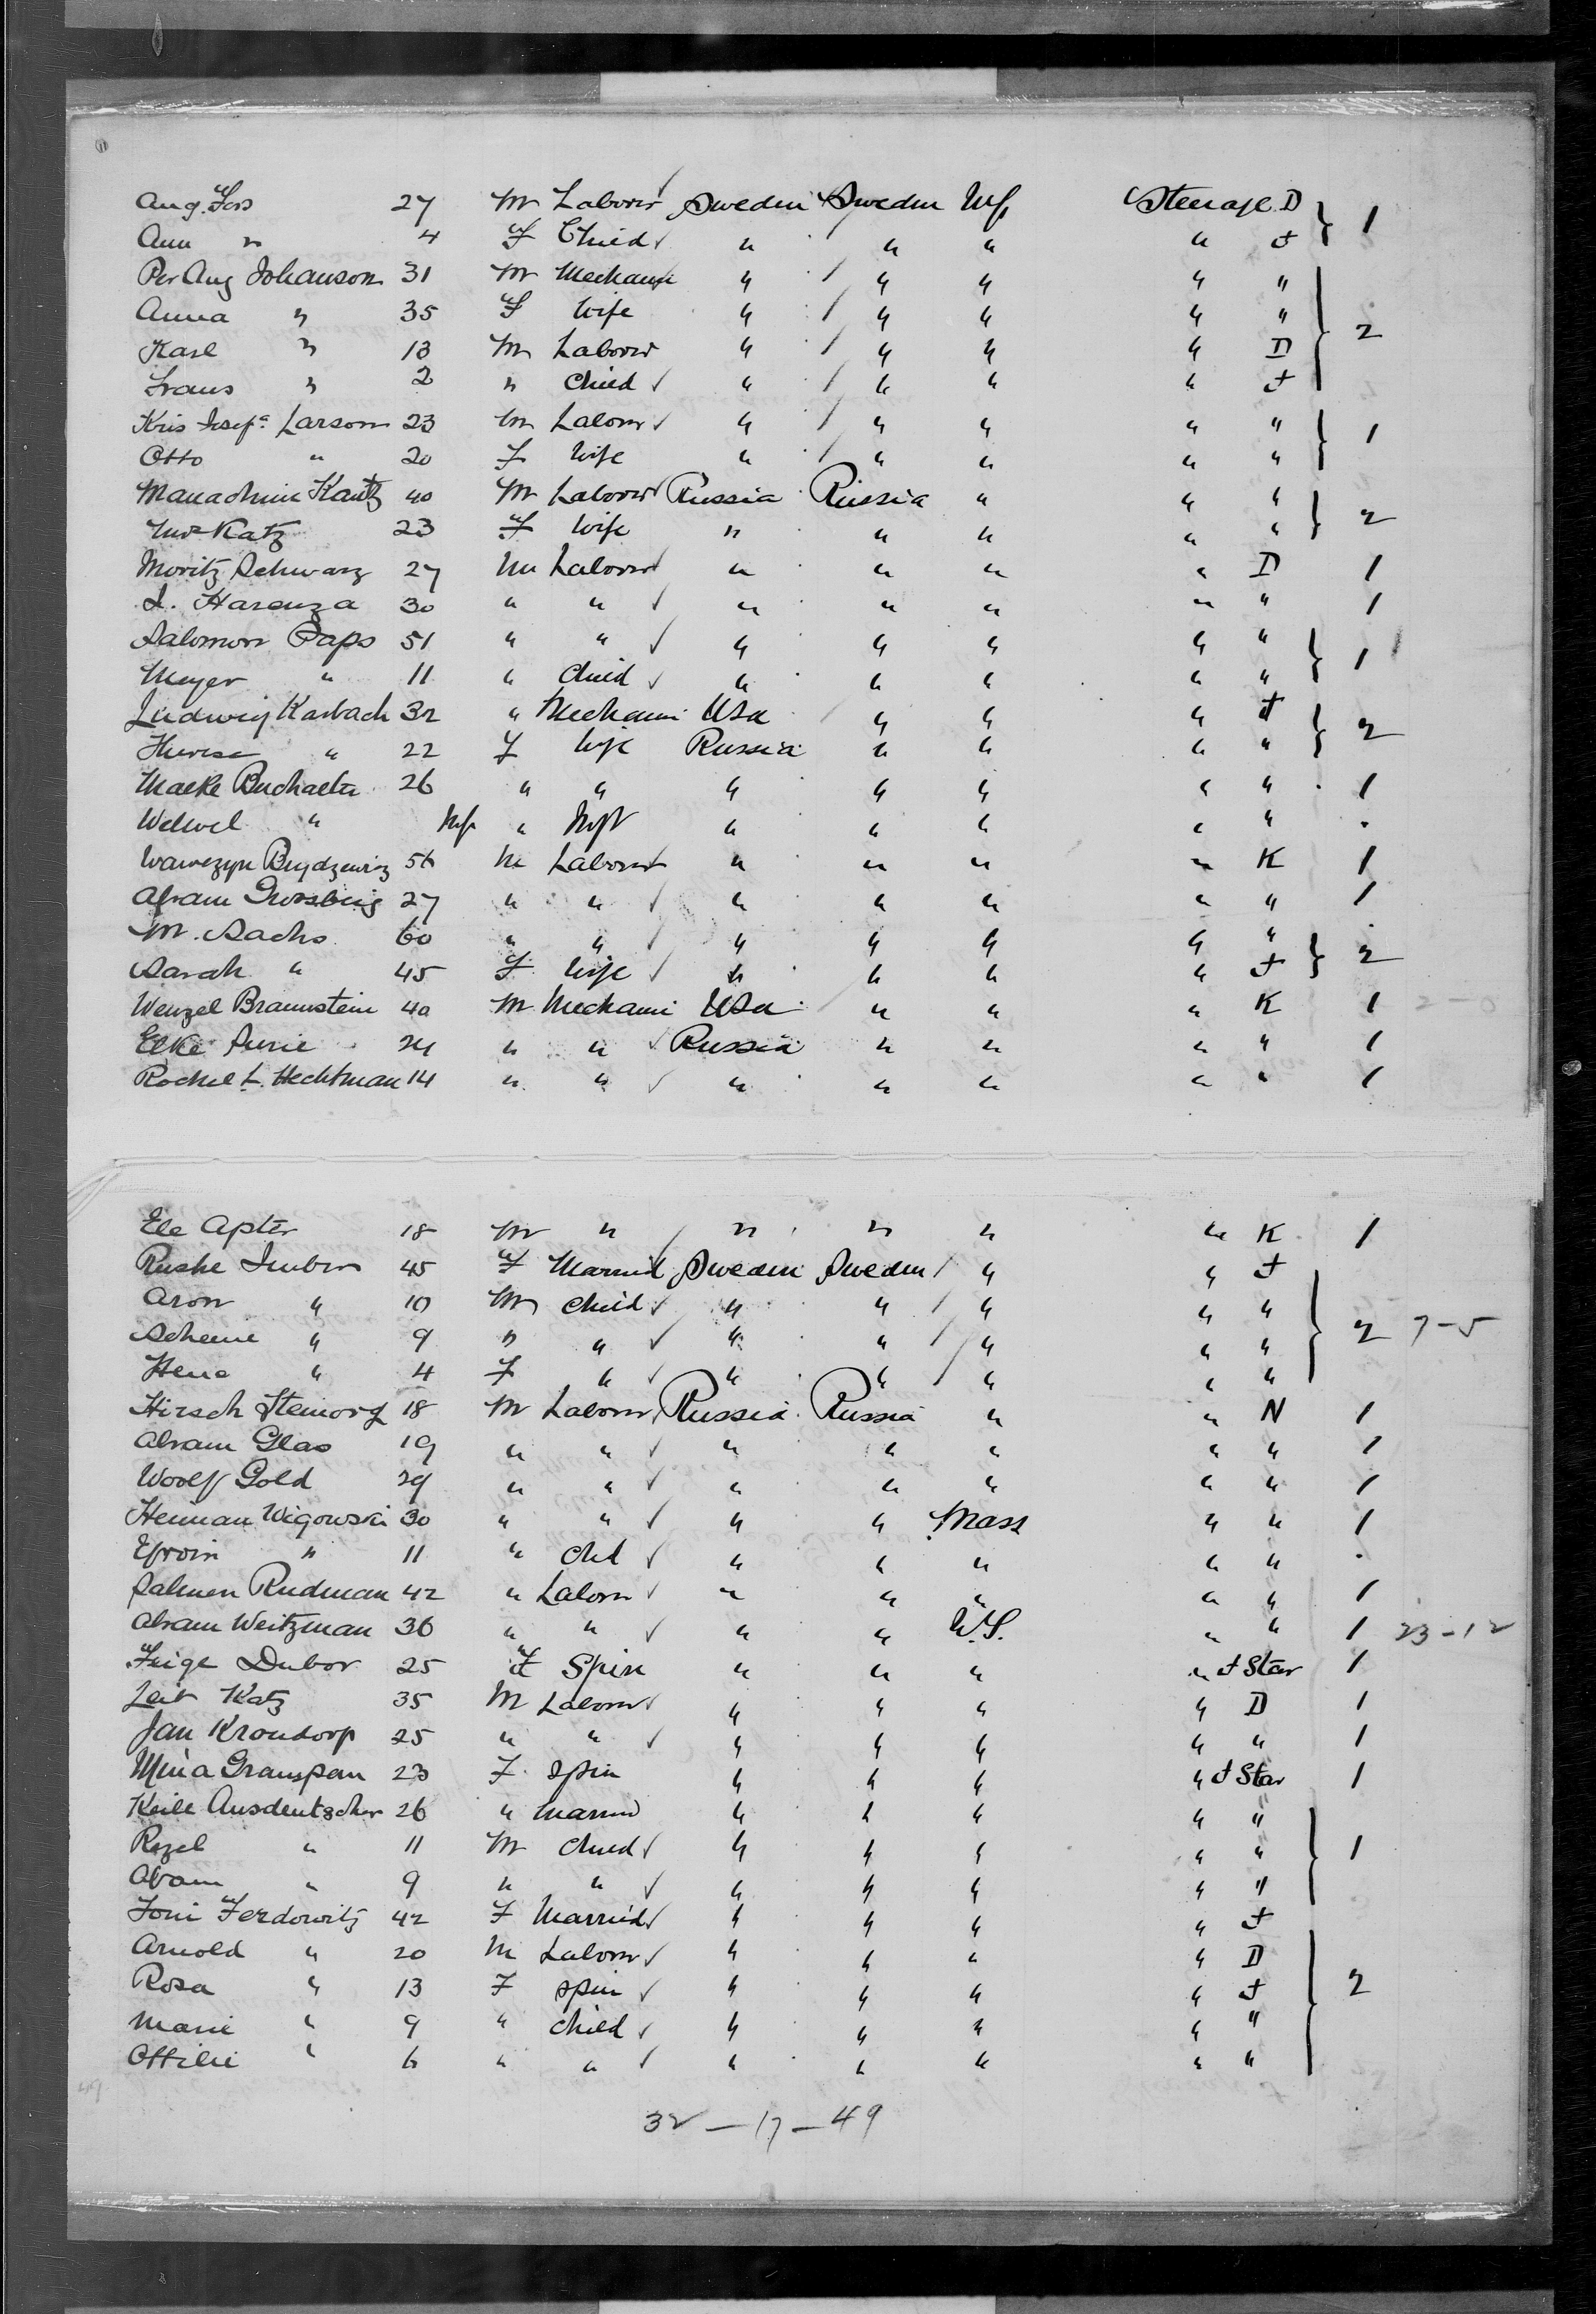 Aug. Fors 27 M Laborer Sweden Sweden NY Steerage D } 1
Ann " 4 F Child " " " " F
Per Aug Johanson 31 M Mechanic " " " " "
Anna " 35 F Wife " " " " " } 2
Karl " 13 M Laborer " " " " D
Frans " 2 " Child " " " " F
Kris Josefa Larson 23 M Labor " " " " " } 1
Otto " 20 F Wife " " " " "
Kantz 40 M Laborer Russia Russia " " " } 2
Katz 23 F Wife " " " " "
Moritz Schwarz 27 M Laborer " " " " D 1
Harenza 30 " " " " " " " 1
Salomon Paps 51 " " " " " " " } 1
Meyer " 11 " Child " " " " "
Ludwig Karbach 32 " Mechanic USA " " " F } 2
Therese " 22 F Wife Russia " " " "
Malke Buchalta 26 " " " " " " " 1
Welwel " Inf " Inft " " " " "
Wawrzyn Brydzewicz 56 M Laborer " " " " K 1
Abram 27 " " " " " " " 1
M. Sachs 60 " " " " " " "
Sarah " 45 F Wife " " " " F } 2
Wenzel Braunstein 40 M Mechanic USA " " " K 1 2-0
Elke Surie 24 " " Russia " " " " 1
Rochel L. Hechtman 14 " " " " " " " 1
Ele Apter 18 M " " " " " K 1
Ruske 45 F Married Sweden Sweden " " F
Aron " 10 M Child " " " " "
Scheine " 9 " " " " " " " } 2 7-5
Hene " 4 F " " " " " "
Hirsch 18 M Labor Russia Russia " " N 1
Abram Glas 19 " " " " " " " 1
Woolf Gold 29 " " " " " " " 1
Heiman Wigowski 30 " " " " Mass " " 1
Efroin " 11 " Chd " " " " "
Salmen Rudman 42 " Labor " " " " " 1
Abram Weitzman 36 " " " " W.S. " " 1 23-12
Feige Dubor 25 F Spin " " " " F Star 1
Leib Katz 35 M Labor " " " " D 1
Jan Krondorp 25 " " " " " " " 1
Mina Granspan 23 F Spin " " " " F Star 1
Keile Ausdeutscher 26 " Married " " " " "
Rozel " 11 M Child " " " " " } 1
Abam " 9 " " " " " " "
Toni Ferdowitz 42 F Married " " " " F
Arnold " 20 M Labor " " " " D
Rosa " 13 F Spin " " " " F } 2
Marie " 9 " Child " " " " "
Ottilie " 6 " " " " " " "
49
32 — 17 — 49